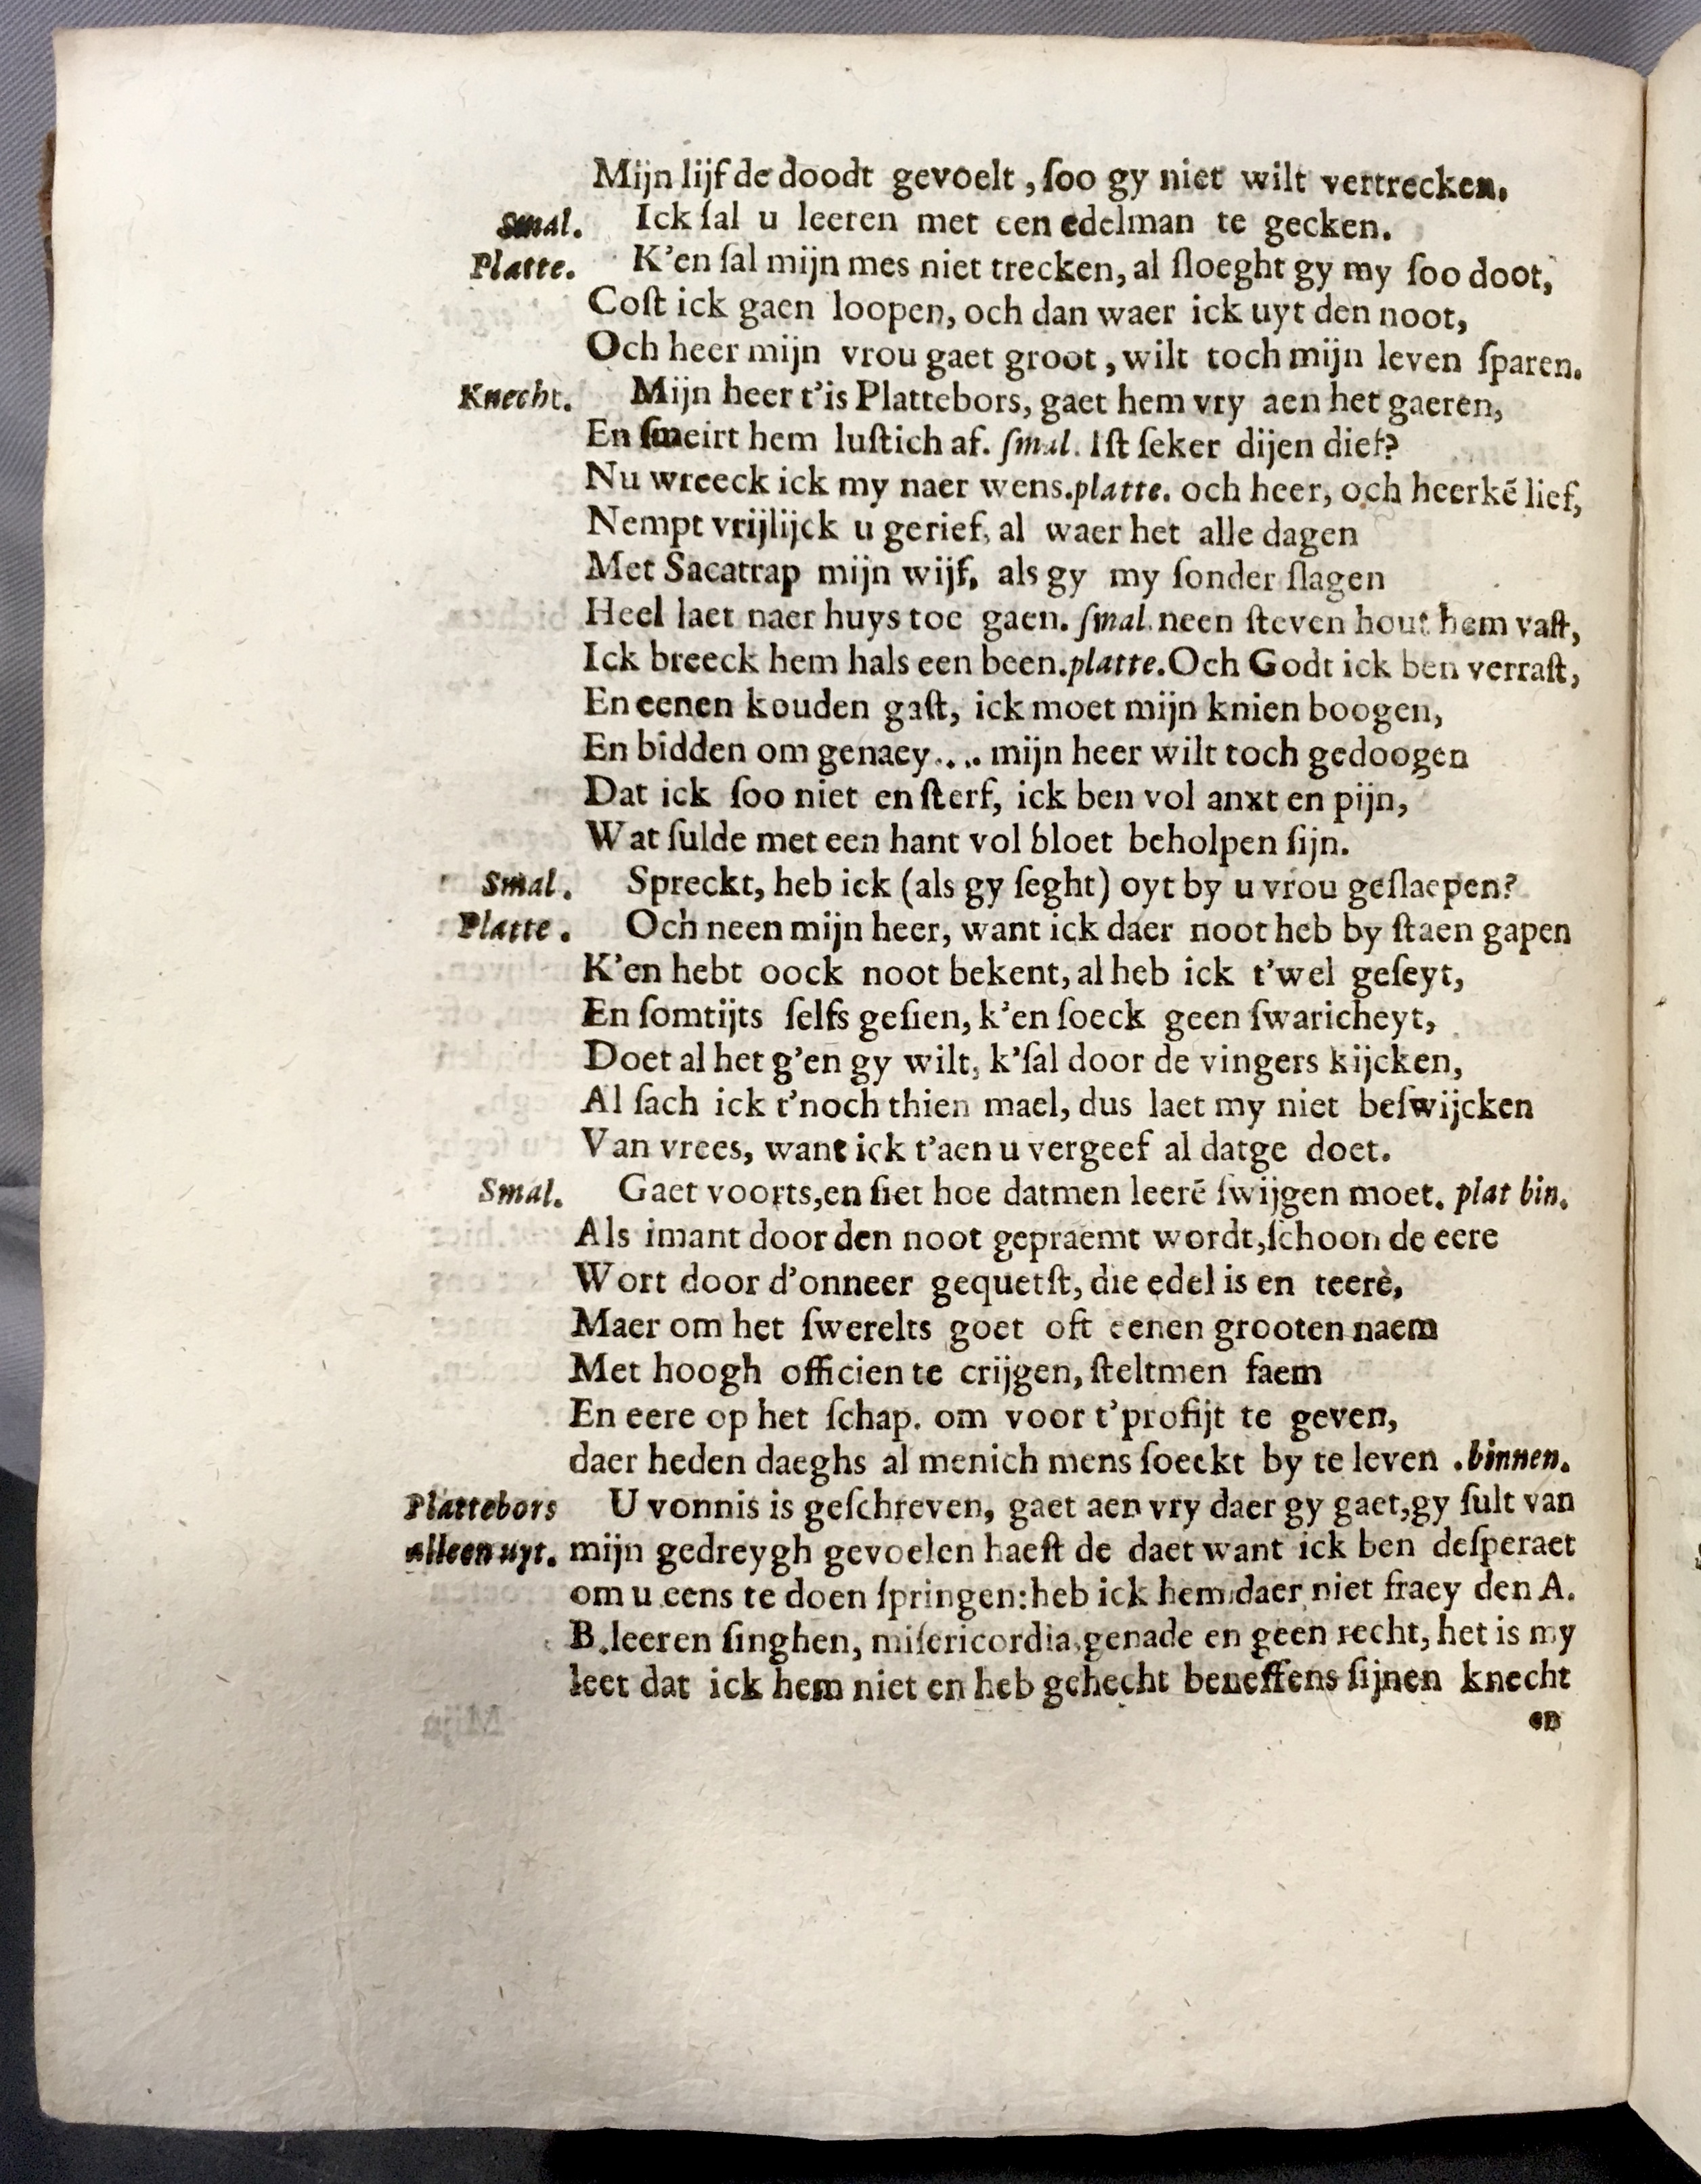 Mijn lijf de doodt gevoelt, ſoo gy niet wilt vertrecken.
Smal. Ick ſal u leeren met een edelman te gecken.
Platte. K'en ſal mijn mes niet trecken, al ſloeght gy my ſoo doot,
Coſt ick gaen loopen, och dan waer ick uyt den noot,
Och heer mijn vrou gaet groot, wilt toch mijn leven ſparen.
Knecht. Mijn heer t'is Plattebors, gaet hem vry aen het gaeren,
En ſmeirt hem luſtich af. ſmal. Iſt ſeker dijen dief?
Nu wreeck ick my naer wens. platte. och heer, och heerkē lief,
Nempt vrijlijck u gerief, al waer het alle dagen
Met Sacatrap mijn wijf, als gy my ſonder ſlagen
Heel laet naer huys toe gaen. ſmal. neen ſteven hout hem vaſt,
Ick breeck hem hals een been. platte. Och Godt ick ben verraſt,
En eenen kouden gaſt, ick moet mijn knien boogen,
En bidden om genaey.... mijn heer wilt toch gedoogen
Dat ick ſoo niet en ſterf, ick ben vol anxt en pijn,
Wat ſulde met een hant vol bloet beholpen ſijn.
Smal. Spreckt, heb ick (als gy ſeght) oyt by u vrou geſlaepen?
Platte. Och neen mijn heer, want ick daer noot heb by ſtaen gapen
K'en hebt oock noot bekent, al heb ick t'wel geſeyt,
En ſomtijts ſelfs geſien, k'en ſoeck geen ſwaricheyt,
Doet al het g'en gy wilt, k'ſal door de vingers kijcken,
Al ſach ick t'noch thien mael, dus laet my niet beſwijcken
Van vrees, want ick t'aen u vergeef al datge doet.
Smal. Gaet voorts, en ſiet hoe datmen leerē ſwijgen moet. plat bin.
Als imant door den noot gepraemt wordt, ſchoon de eere
Wort door d'onneer gequetſt, die edel is en teere,
Maer om het ſwerelts goet oft eenen grooten naem
Met hoogh officien te crijgen, ſteltmen faem
En eere op het ſchap. om voor t'profijt te geven,
daer heden daeghs al menich mens ſoeckt by te leven. binnen.
Plattebors U vonnis is geſchreven, gaet aen vry daer gy gaet, gy ſult van
alleen uyt. mijn gedreygh gevoelen haeſt de daet want ick ben deſperaet
om u eens te doen ſpringen: heb ick hem daer niet fraey den A.
B. leeren ſinghen, miſericordia, genade en geen recht, het is my
leet dat ick hem niet en heb gehecht beneffens ſijnen knecht
en